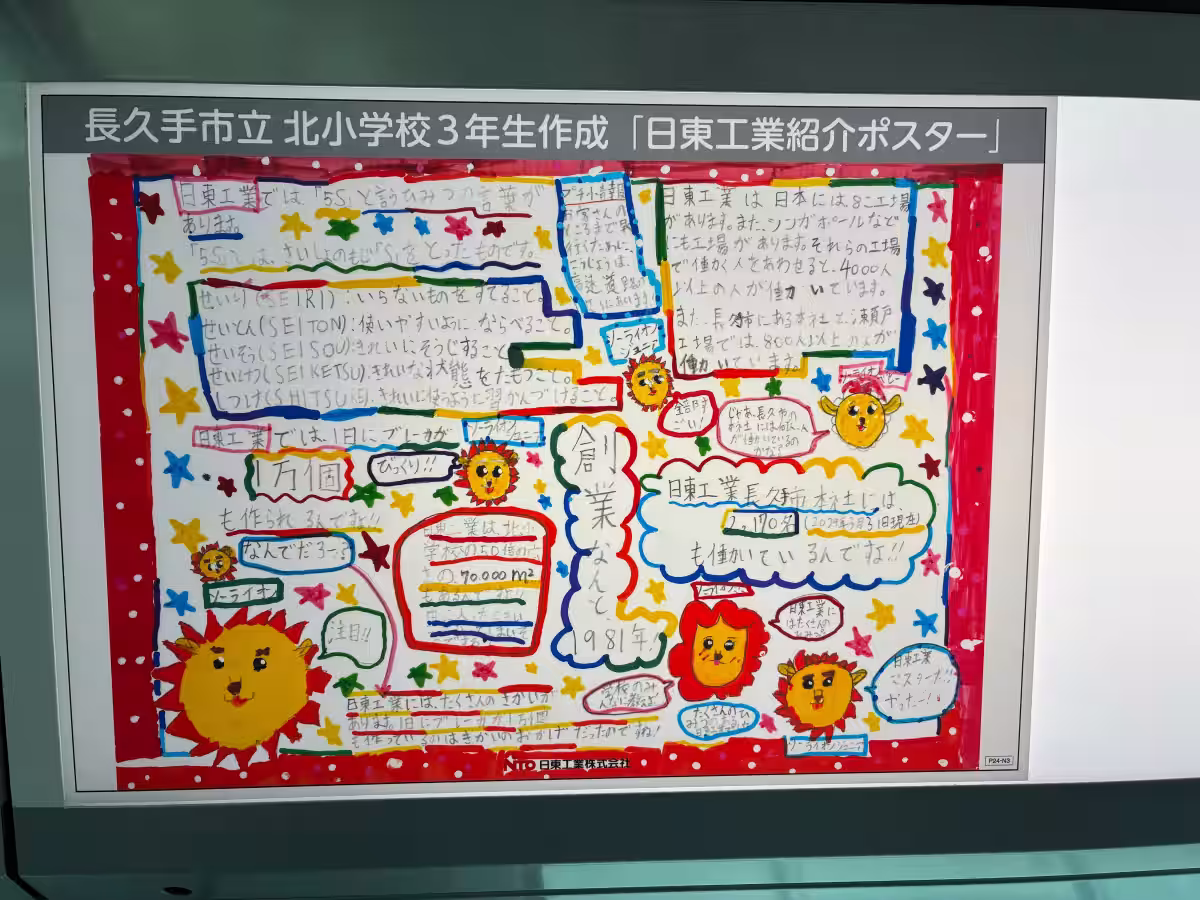 長久手市立 北小学校3年生作成「日東工業紹介ポスター」
日東工業では「5S」と言うひみつの言葉が
あります。
「5S」とは、さいしょのもじ「S」をとったものです。
せいり(SEIRI):いらないものをすてること。
せいとん(SEITON):使いやすいように、ならべること。
せいそう(SEISOU):きれいにそうじすること
せいけつ(SEIKETSU):きれいな状態をたもつこと。
しつけ(SHITSUKE):きれいに使うように習かんづけること。
プチ情報
お客さんの
ところまで
行くために、
こうじょうは、
高速道路の
日東工業は日本には8こ工場
があります。また、シンガポールなど
にも工場があります。それらの工場
で働く人をあわせると、4000人
以上の人が働いています。
また、長久手市にある本社と瀬戸
工場では、800人以上の人が
働いています。
ソーライオン
ジュニア
全部す
ごい!
じゃあ、長久市の
本社には何人
が働いているの
かな?
日東工業では、1日にブレーカが
1万個
も作られるんですよ!!
びっくり!!
ソーライオンジュニア
なんでだろー?
ソーライオン
注目!!
日東工業は、北小
学校の50倍の広
さの、70.000m²
もあるんですよ!!
創業なんと、1981年!
日東工業長久手市本社には
2,170名
も働いているんですよ!!
日東工業に
はたくさんの
ひみつ
学校のみ
んなに教えよ
たくさんのひ
日東工業
マスターだ!!
やったー!!
ソーライオンジュニア
日東工業には、たくさんのきかいが
あります。1日にブレーカが1万個
も作っているのはきかいのおかげだったのですね!
NITO 日東工業株式会社
P24-N3